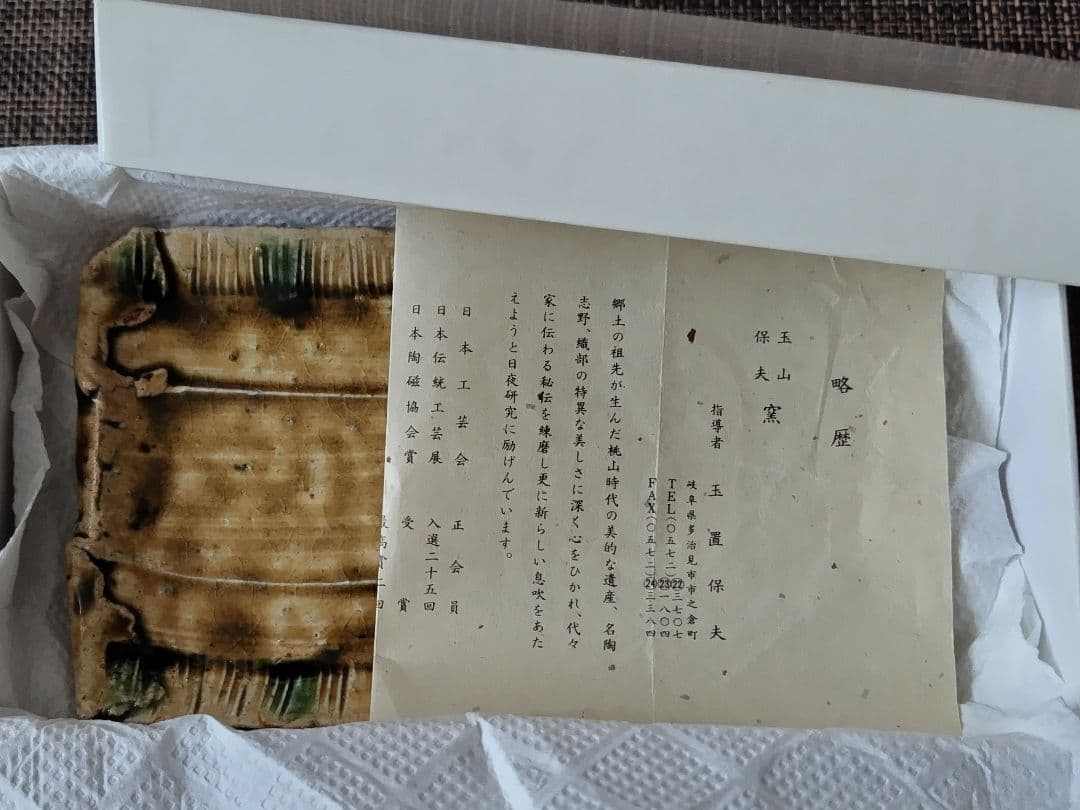 略歴
玉山
保夫
窯
指導者 玉置保夫
岐阜県多治見市市之倉町
TEL(〇五七二)㉒三七〇七
㉓一八〇四
FAX(〇五七二)㉔三三八四
郷土の祖先が生んだ桃山時代の美的な遺産、名陶
志野、織部の特異な美しさに深く心をひかれ、代々
家に伝わる秘伝を練磨し更に新らしい息吹をあた
えようと日夜研究に励げんでいます。
日本工芸会 正会員
日本伝統工芸展 入選二十五回
日本陶磁協会賞 受賞